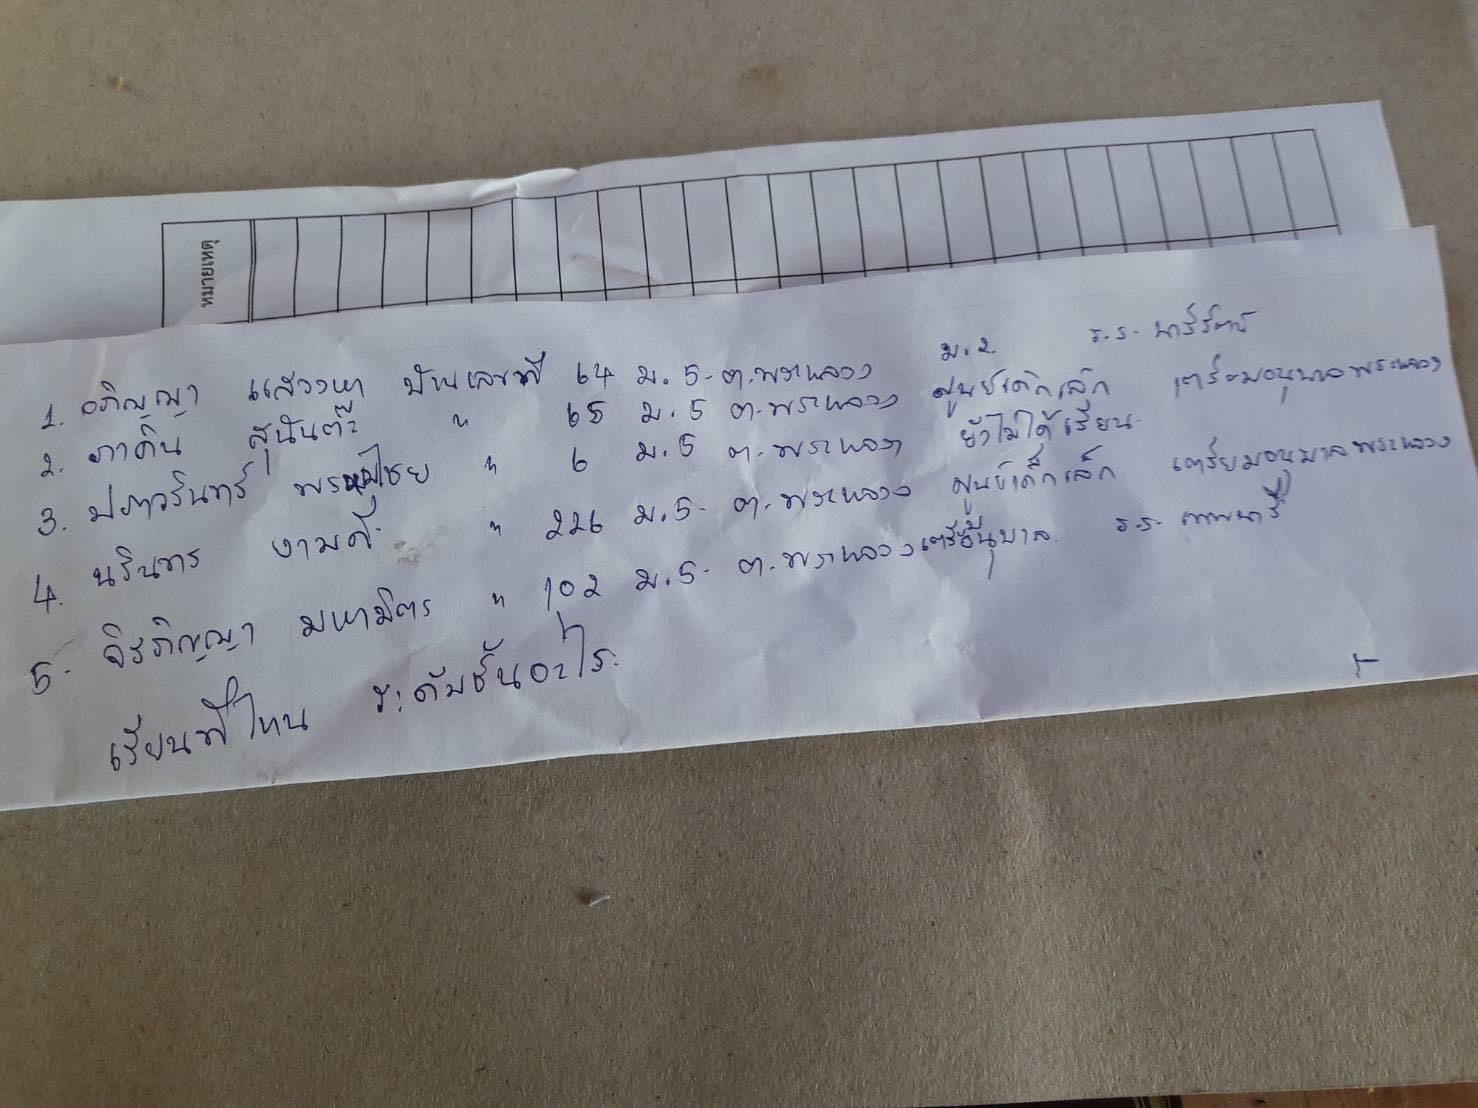 หมายเหตุ
1. อภิญญา แสวงหา บ้านเลขที่ 64 ม.5 ต.พระหลวง ม.2 ร.ร. นารีรัตน์
2. ภาคิน สุนันต๊ะ " 65 ม.5 ต.พระหลวง ศูนย์เด็กเล็ก เตรียมอนุบาลพระหลวง
3. ปภาวรินทร์ " 6 ม.5 ต.พระหลวง ยังไม่ได้เรียน
4. นรินทร งามดี " 226 ม.5 ต.พระหลวง ศูนย์เด็กเล็ก เตรียมอนุบาลพระหลวง
5. จิรภิญญา มหามิตร " 102 ม.5 ต.พระหลวง ร.ร. เทพนารี
เรียนที่ไหน ระดับชั้นอะไร